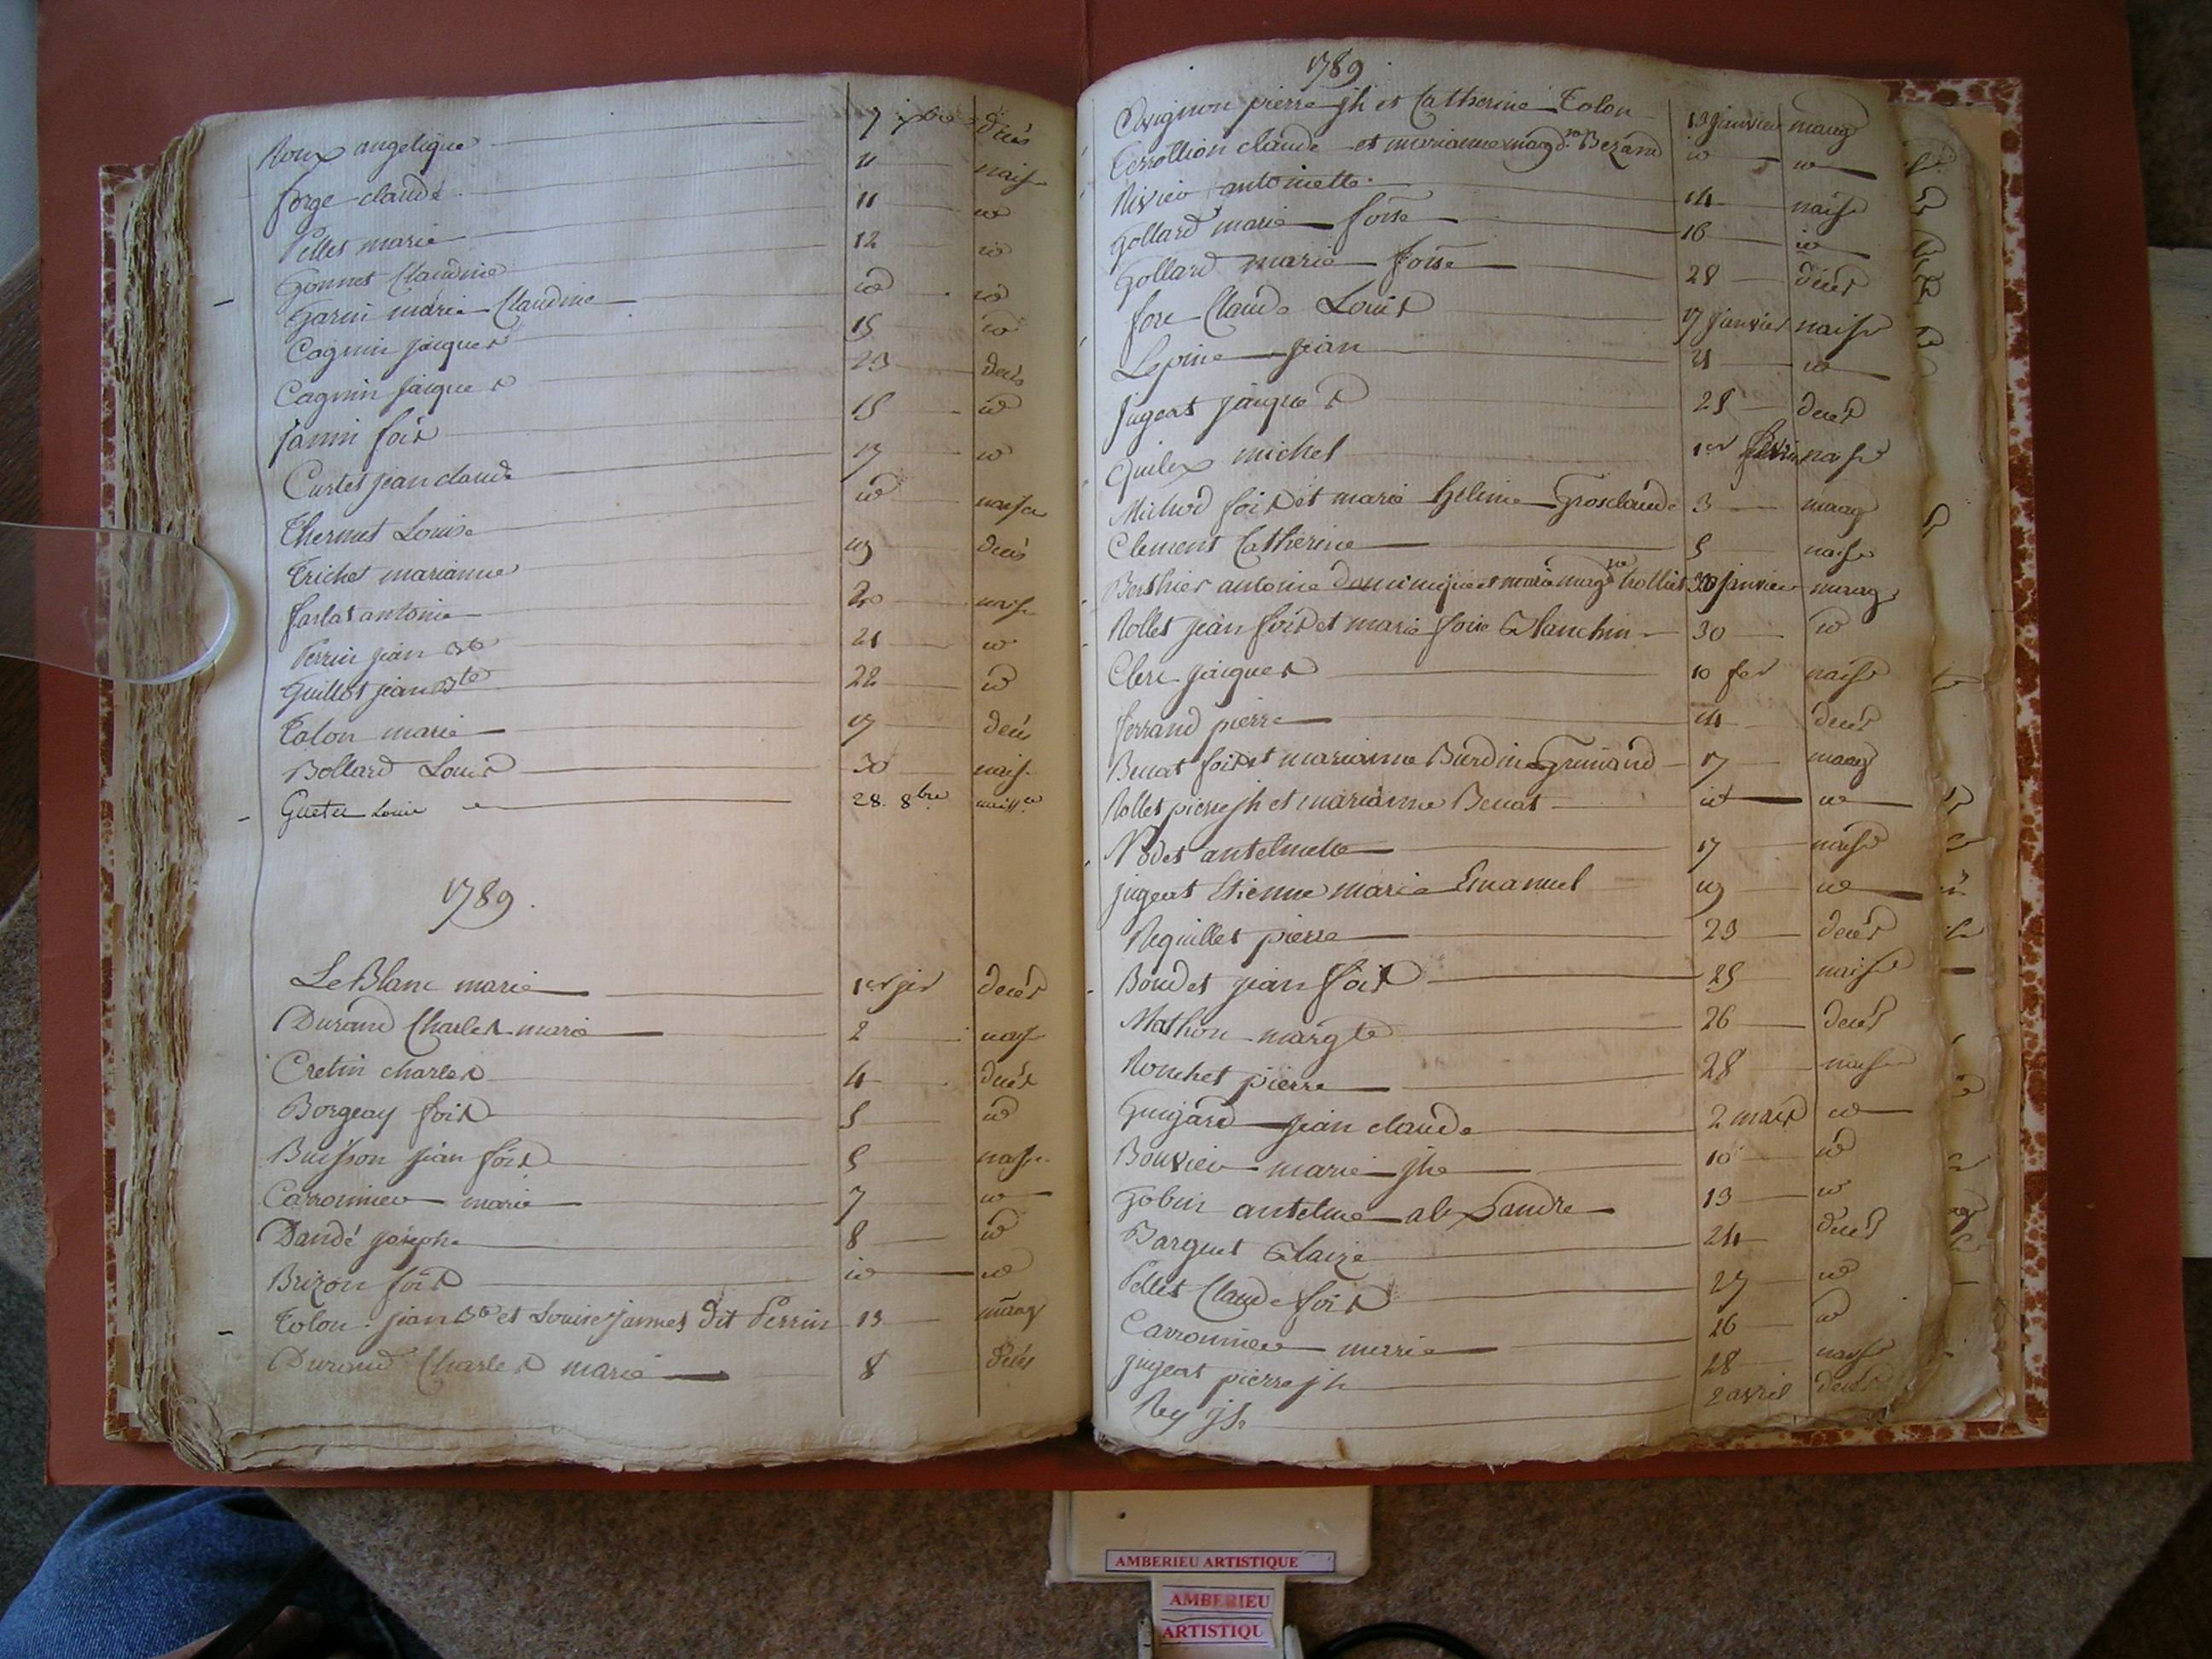 Roux angelique 7 xbre décès
forge claude 11 naiss
Pellet marie 11 id
Gonnet Claudine 12 id
Garin marie Claudine id id
Cagnin jacques 15 id
Cagnin jacques 23 décès
janin fois 15 id
Curtet jean claude 17 id
Thernet Louise id naisce
Trichet marianne 19 décès
farlat antoine 20 naiss
Perrin jean Bte 21 id
Guillot jean Bte 22 id
Tolon marie 17 décès
Bollard Louis 30 naiss
Guetu Louise 28. 8bre naissce
1789.
Le Blanc marie 1er jer decès
Durand Charles marie 2 naiss
Cretin charles 4 decès
Borgeay fois 5 id
Buisson jean fois 5 naiss
Carronnier marie 7 id
Dandé josephe 8 id
Brizon fois id id
Tolon jean Bte et Louise james dit Perrin 13 maag
Durand Charles marie 8 décès
1789.
Savignon pierre jh et Catherine Tolon 13 janvier maag
Terrollion claude et marianne magd.ne Bezand id id
Rivier antoinette 14 naiss
Gollard marie foise 16 id
Gollard marie foise 28 décès
fore Claude Louis 17 janvier naiss
Lepine jean 21 id
jugeat jaques 25 decès
Guilex michel 1er fevrier naiss
Michod fois et marie heleine Grosclaude 3 maag
Clement Catherine 5 naiss
Berthier antoine dominique et marie magne trolliet 30 janvier maag
Rollet jean fois et marie foise Blanchin 30 id
Clerc jaques 10 fer naiss
ferrand pierre 14 decès
Benat fois et marianne Burdin Grimand 17 maag
Rollet pierre jh et marianne Benat id id
Nodet antelmette 17 naiss
jugeat Etienne marie Emanuel 19 id
Reguillet pierre 23 decès
Boudet jean fois 25 naiss
Mathon margte 26 decès
Ronchet pierre 28 naiss
Guigard jean claude 2 mars id
Bouvier marie jhe 10 id
Gobin antelme alexandre 13 id
Barguet Blaize 24 decès
Pellet Claude fois 27 id
Carronnier marie 26 id
jugeat pierre jh 28 naiss
Rey jh 2 avril decès
AMBERIEU ARTISTIQUE
AMBERIEU
ARTISTIQU